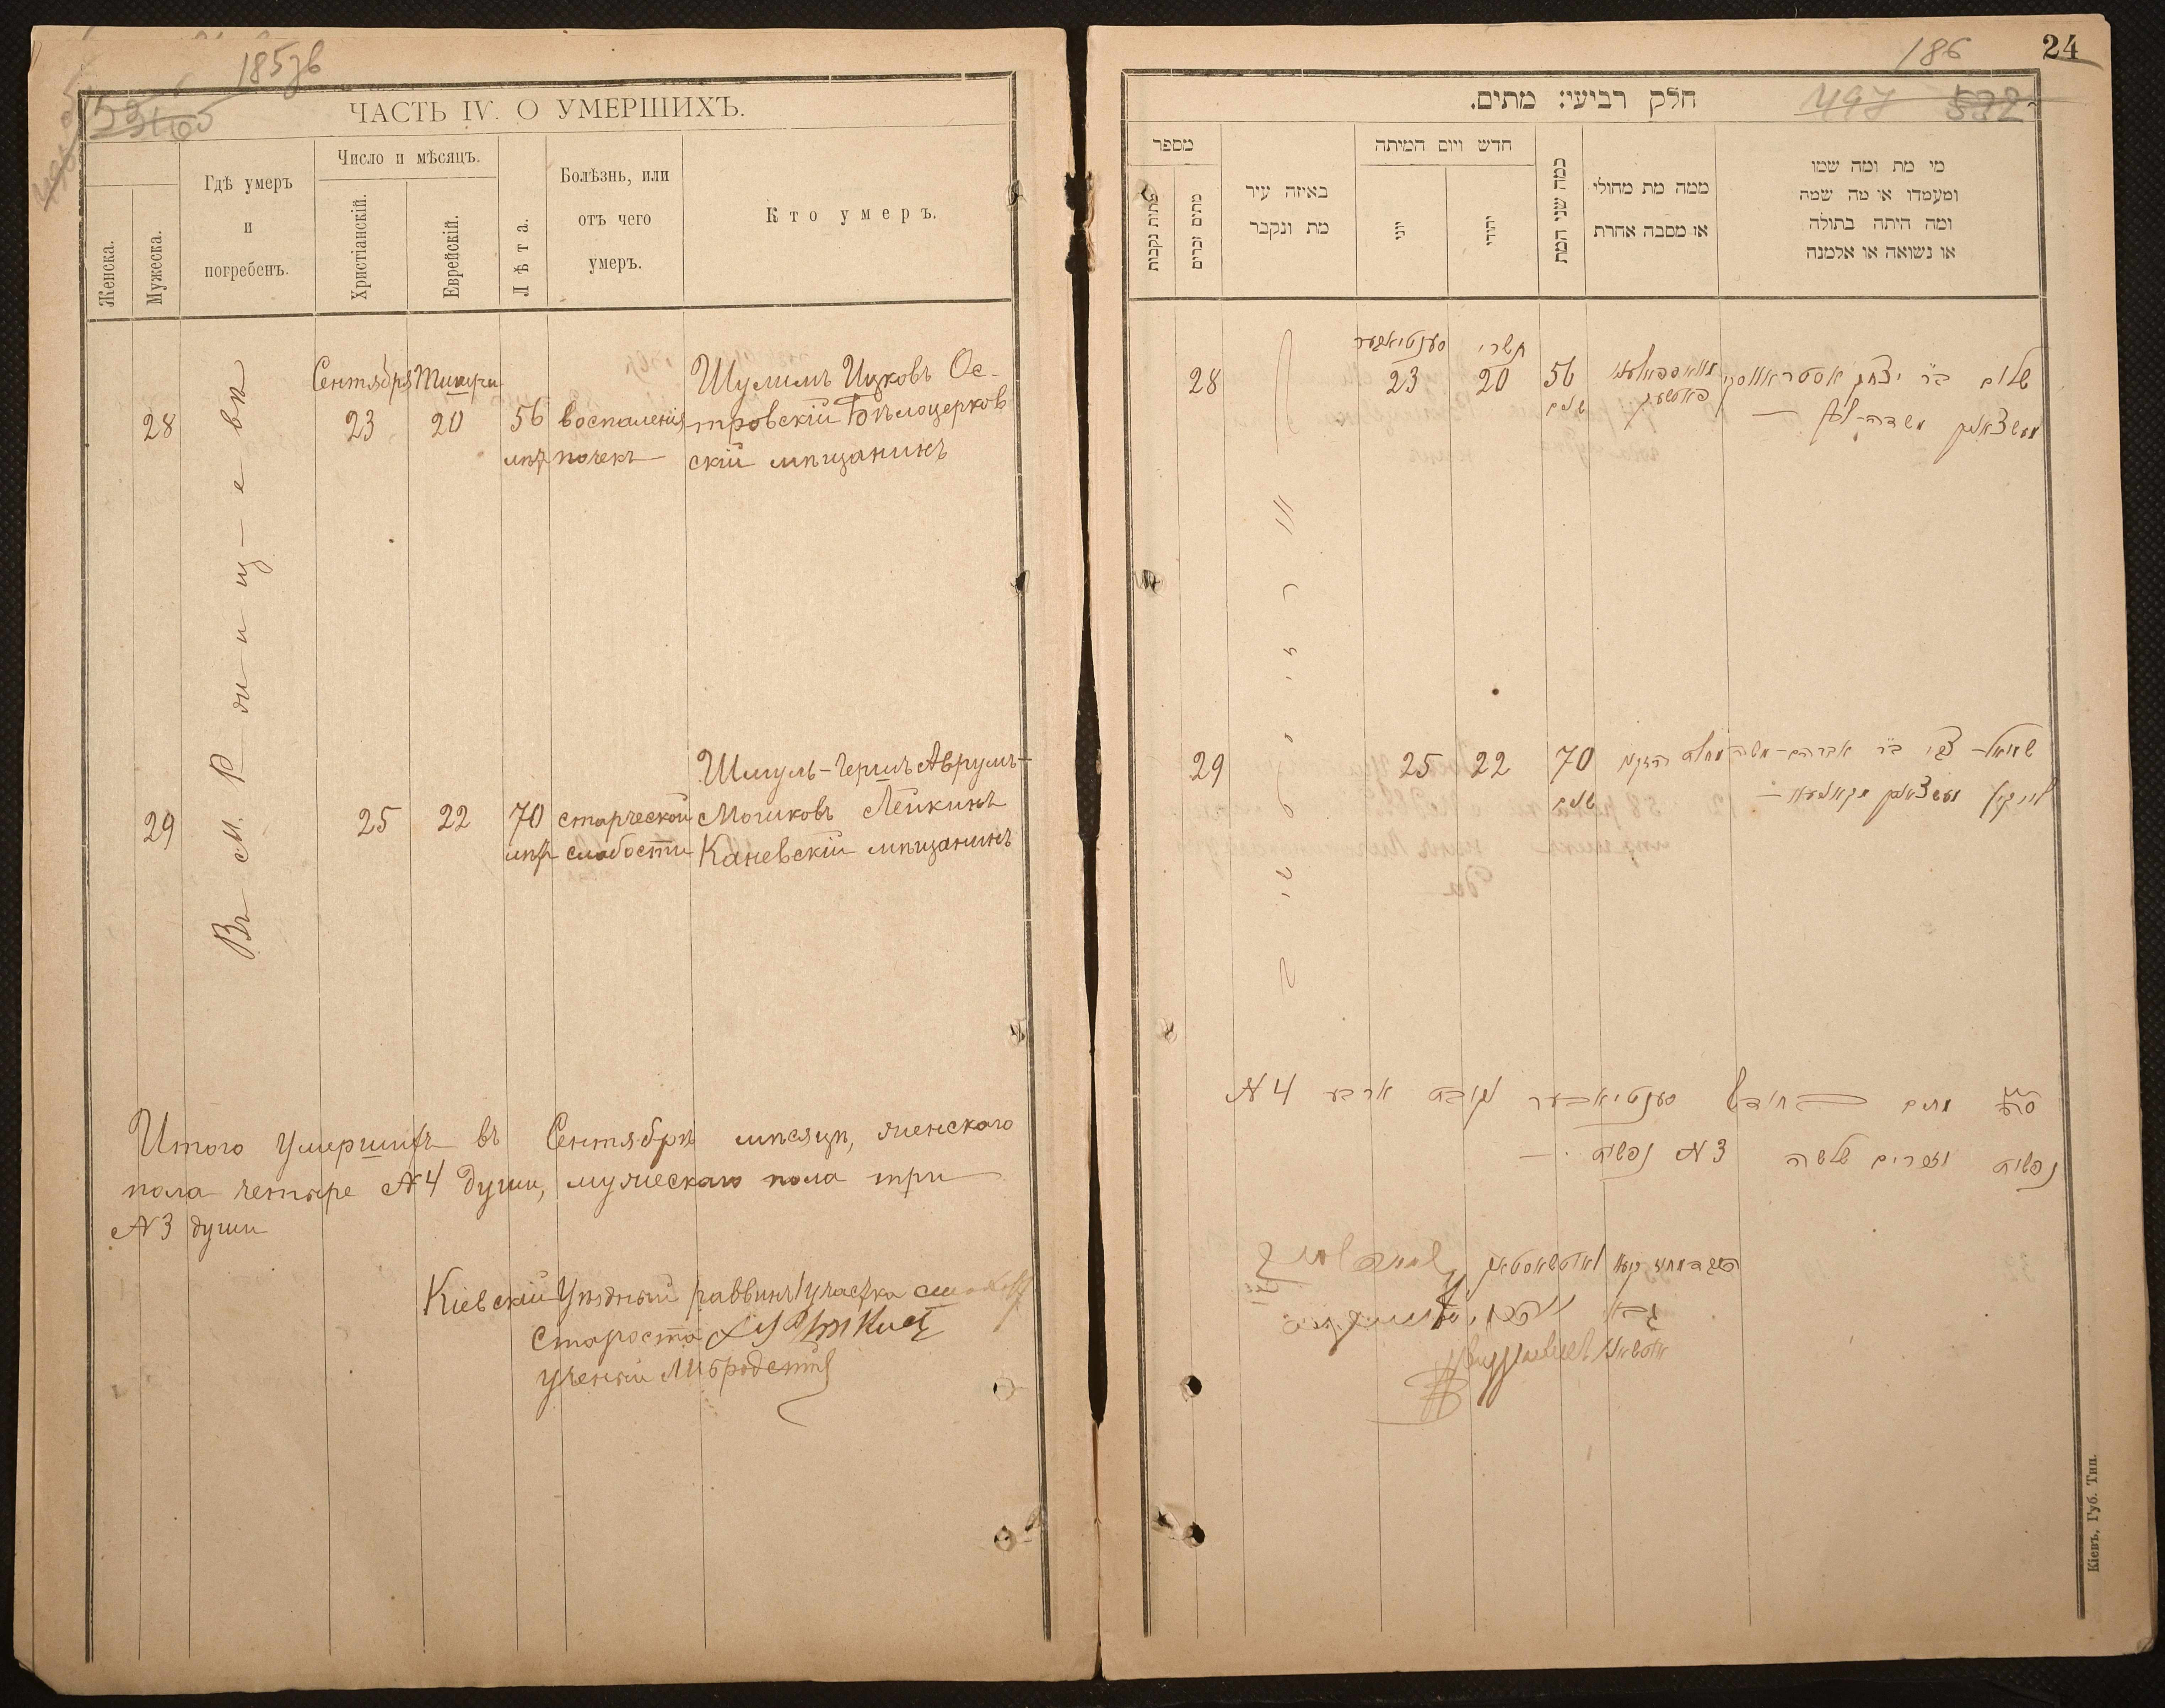 185 зв
ЧАСТЬ IV. О УМЕРШИХЪ.
Женска.
Мужеска.
Гдѣ умеръ
и
погребенъ.
Число и мѣсяцъ.
Христіанскій.
Еврейскій.
Лѣта.
Болѣзнь, или
отъ чего
умеръ.
Кто умеръ.
Въ м. Ржищевѣ
Сентября Тишри
28 23 20 56 лѣтъ
воспаленія
почекъ
Шулимъ Ицковъ Ос-
тровскій Бѣлоцерков
скій мѣщанинъ
29 25 22 70 лѣтъ
старческой
слабости
Шмуль-Гершъ Аврумъ-
Мошковъ Лейкинъ
Каневскій мѣщанинъ
Итого умершихъ въ Сентябрѣ мѣсяцѣ, женскаго
пола четыре №4 души, мужескаго пола три
№3 души
Кіевскій Уѣздный раввинъ 1 участка
Староста
Ученый
186
24
חלק רביעי: מתים.
497 532
מספר
מתות נקבות
מתים זכרים
באיזה עיר
מת ונקבר
חדש ויום המיתה
יוני
יהודי
כמה שני המת
ממה מת מחולי
או מסבה אחרת
מי מת ומה שמו
ומעמדו או מה שמה
ומה היתה בתולה
או נשואה או אלמנה
סענטיאבער תשרי
28 23 20 56 שנים
שלום ב"ר יצחק אסטראווסקי
29 25 22 70 שנים
שמואל- צבי ב"ר אברהם-משה
מתים בחודש סענטיאבער נקבות ארבע №4
נפשות וזכרים שלשה №3 נפשות
Кіевъ, Губ. Тип.